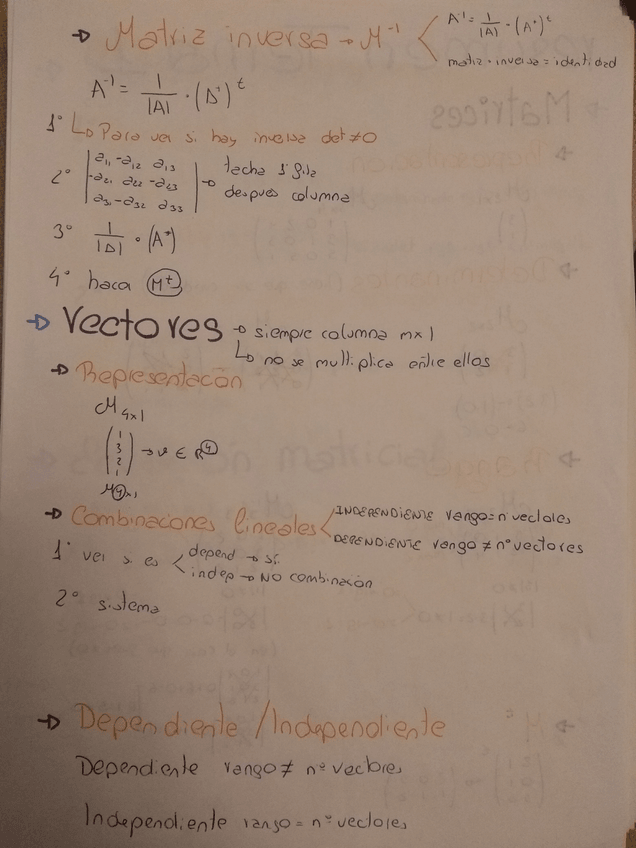 → Matriz inversa → M⁻¹ < A⁻¹ = 1/|A| · (A*)ᵗ
matriz · inversa = identidad
A⁻¹ = 1/|A| · (A*)ᵗ
1° ↳ Para ver si hay inversa det ≠ 0
2° | a₁₁ -a₁₂ a₁₃ | → tacha 1° fila
| -a₂₁ a₂₂ -a₂₃ | despues columna
| a₃₁ -a₃₂ a₃₃ |
3° 1/|A| · (A*)
4° haca Mᵗ
→ Vectores → siempre columna mx1
↳ no se multiplica entre ellos
→ Representación
M₄ₓ₁
(1 3 2 1) → v ∈ R⁴
M₄ₓ₁
→ Combinaciones lineales < INDEPENDIENTE rango = nº vectores
DEPENDIENTE rango ≠ nº vectores
1° ver si es < depend → sí
indep → NO combinación
2° sistema
→ Dependiente / Independiente
Dependiente rango ≠ nº vectores
Independiente rango = nº vectores